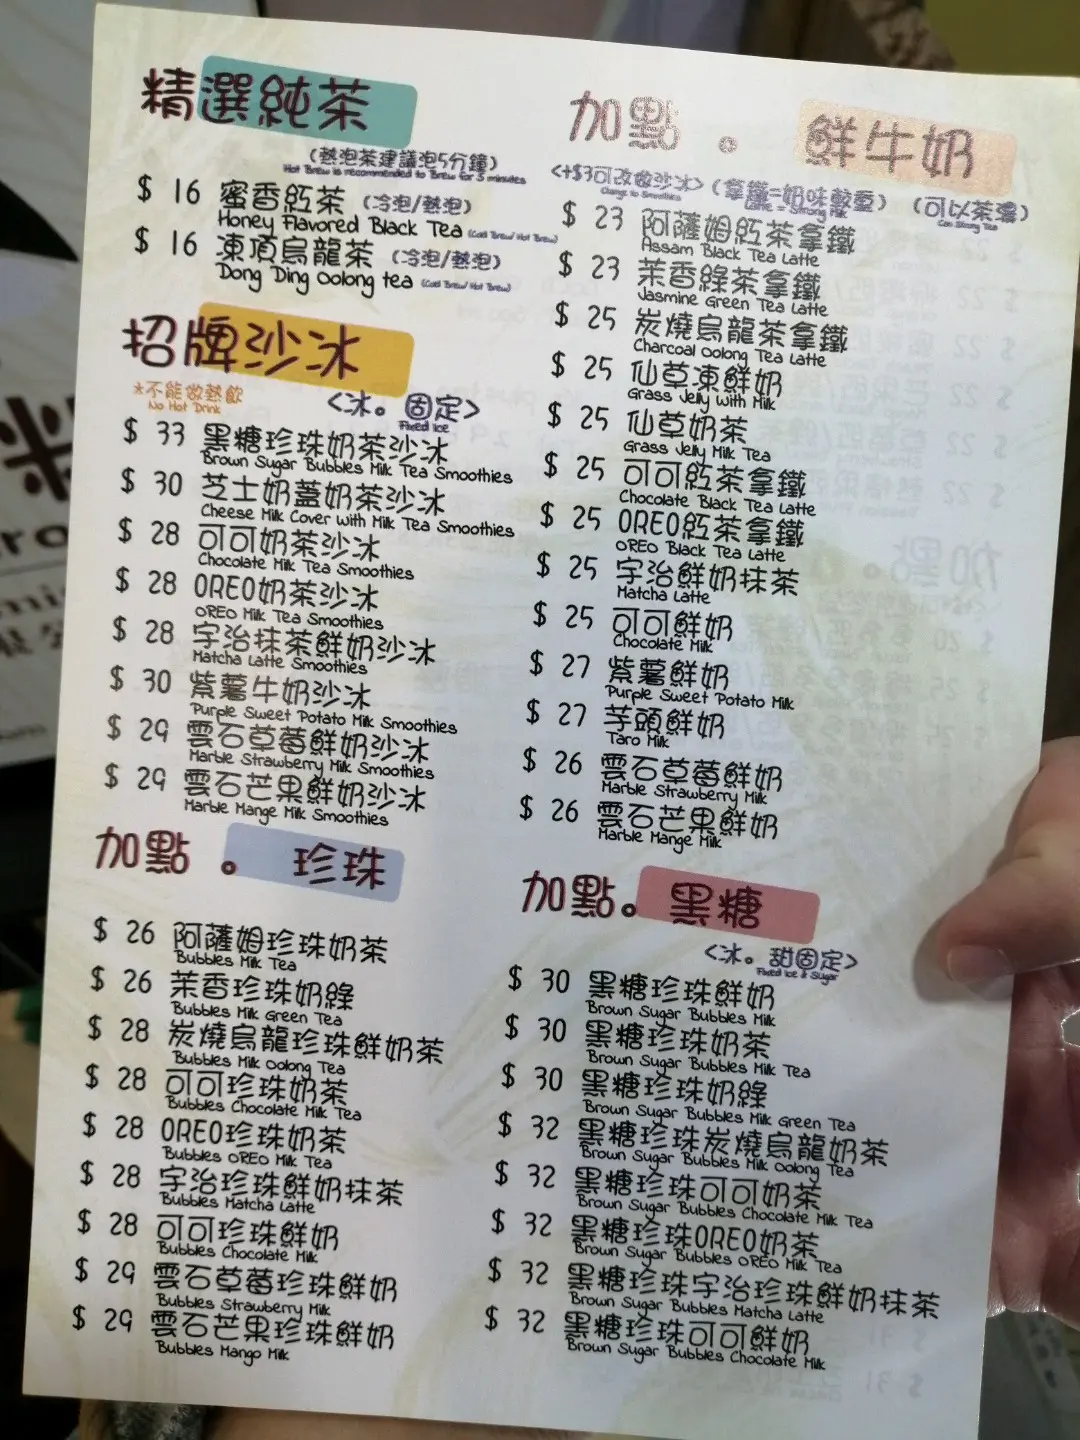 精選純茶
(熱泡茶建議泡5分鐘)
Hot Brew is recommended to Brew for 5 minutes
$ 16 蜜香紅茶 (冷泡/熱泡)
Honey Flavored Black Tea (Cold Brew/Hot Brew)
$ 16 凍頂烏龍茶 (冷泡/熱泡)
Dong Ding Oolong tea (Cold Brew/Hot Brew)
招牌沙冰
*不能做熱飲
No Hot Drink
<冰。固定>
Fixed Ice
$ 33 黑糖珍珠奶茶沙冰
Brown Sugar Bubbles Milk Tea Smoothies
$ 30 芝士奶蓋奶茶沙冰
Cheese Milk Cover with Milk Tea Smoothies
$ 28 可可奶茶沙冰
Chocolate Milk Tea Smoothies
$ 28 OREO奶茶沙冰
OREO Milk Tea Smoothies
$ 28 宇治抹茶鮮奶沙冰
Matcha Latte Smoothies
$ 30 紫薯牛奶沙冰
Purple Sweet Potato Milk Smoothies
$ 29 雲石草莓鮮奶沙冰
Marble Strawberry Milk Smoothies
$ 29 雲石芒果鮮奶沙冰
Marble Mange Milk Smoothies
加點。珍珠
$ 26 阿薩姆珍珠奶茶
Bubbles Milk Tea
$ 26 茉香珍珠奶綠
Bubbles Milk Green Tea
$ 28 炭燒烏龍珍珠鮮奶茶
Bubbles Milk Oolong Tea
$ 28 可可珍珠奶茶
Bubbles Chocolate Milk Tea
$ 28 OREO珍珠奶茶
Bubbles OREO Milk Tea
$ 28 宇治珍珠鮮奶抹茶
Bubbles Matcha Latte
$ 28 可可珍珠鮮奶
Bubbles Chocolate Milk
$ 29 雲石草莓珍珠鮮奶
Bubbles Strawberry Milk
$ 29 雲石芒果珍珠鮮奶
Bubbles Mango Milk
加點。鮮牛奶
<+$3可改做沙冰> (拿鐵=奶味較重) (可以茶濃)
Change to Smoothies Latte = Strong Milk Can Strong Tea
$ 23 阿薩姆紅茶拿鐵
Assam Black Tea Latte
$ 23 茉香綠茶拿鐵
Jasmine Green Tea Latte
$ 25 炭燒烏龍茶拿鐵
Charcoal Oolong Tea Latte
$ 25 仙草凍鮮奶
Grass Jelly with Milk
$ 25 仙草奶茶
Grass Jelly Milk Tea
$ 25 可可紅茶拿鐵
Chocolate Black Tea Latte
$ 25 OREO紅茶拿鐵
OREO Black Tea Latte
$ 25 宇治鮮奶抹茶
Matcha Latte
$ 25 可可鮮奶
Chocolate Milk
$ 27 紫薯鮮奶
Purple Sweet Potato Milk
$ 27 芋頭鮮奶
Taro Milk
$ 26 雲石草莓鮮奶
Marble Strawberry Milk
$ 26 雲石芒果鮮奶
Marble Mange Milk
加點。黑糖
<冰。甜固定>
Fixed Ice & Sugar
$ 30 黑糖珍珠鮮奶
Brown Sugar Bubbles Milk
$ 30 黑糖珍珠奶茶
Brown Sugar Bubbles Milk Tea
$ 30 黑糖珍珠奶綠
Brown Sugar Bubbles Milk Green Tea
$ 32 黑糖珍珠炭燒烏龍奶茶
Brown Sugar Bubbles Milk Oolong Tea
$ 32 黑糖珍珠可可奶茶
Brown Sugar Bubbles Chocolate Milk Tea
$ 32 黑糖珍珠OREO奶茶
Brown Sugar Bubbles OREO Milk Tea
$ 32 黑糖珍珠宇治珍珠鮮奶抹茶
Brown Sugar Bubbles Matcha Latte
$ 32 黑糖珍珠可可鮮奶
Brown Sugar Bubbles Chocolate Milk